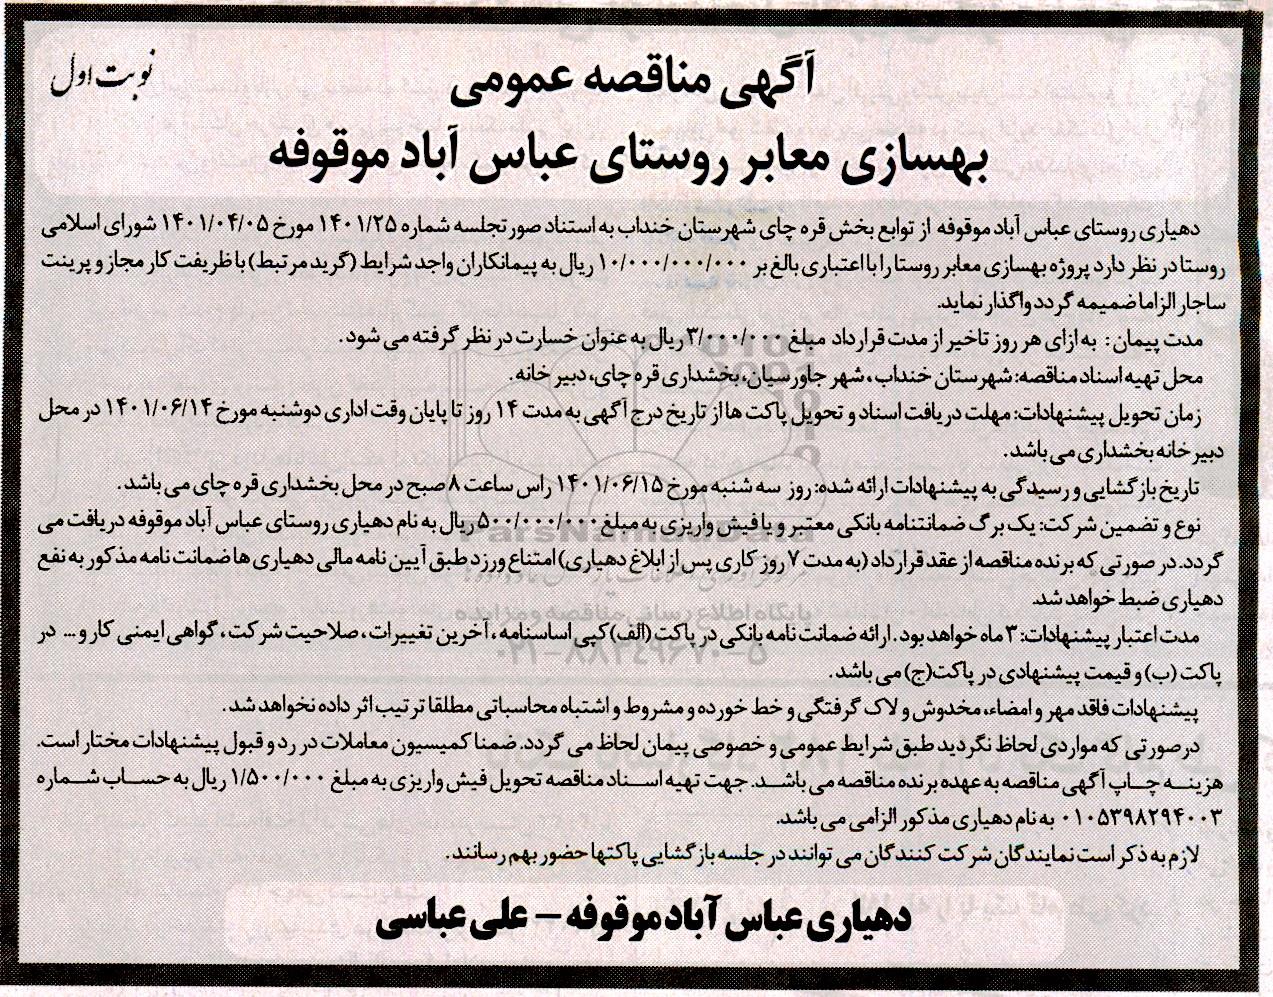 نوبت اول
آگهی مناقصه عمومی
بهسازی معابر روستای عباس آباد موقوفه
دهیاری روستای عباس آباد موقوفه از توابع بخش قره چای شهرستان خنداب به استناد صورتجلسه شماره ۱۴۰۱/۲۵ مورخ ۱۴۰۱/۰۴/۰۵ شورای اسلامی
روستا در نظر دارد پروژه بهسازی معابر روستا را با اعتباری بالغ بر ۱۰/۰۰۰/۰۰۰/۰۰۰ ریال به پیمانکاران واجد شرایط (گرید مرتبط) با ظریفت کار مجاز و پرینت
ساجار الزاما ضمیمه گردد واگذار نماید.
مدت پیمان : به ازای هر روز تاخیر از مدت قرارداد مبلغ ۳/۰۰۰/۰۰۰ ریال به عنوان خسارت در نظر گرفته می شود.
محل تهیه اسناد مناقصه: شهرستان خنداب، شهر جاورسیان، بخشداری قره چای، دبیر خانه.
زمان تحویل پیشنهادات: مهلت دریافت اسناد و تحویل پاکت ها از تاریخ درج آگهی به مدت ۱۴ روز تا پایان وقت اداری دوشنبه مورخ ۱۴۰۱/۰۶/۱۴ در محل
دبیر خانه بخشداری می باشد.
تاریخ بازگشایی و رسیدگی به پیشنهادات ارائه شده: روز سه شنبه مورخ ۱۴۰۱/۰۶/۱۵ راس ساعت ۸ صبح در محل بخشداری قره چای می باشد.
نوع و تضمین شرکت: یک برگ ضمانتنامه بانکی معتبر و یا فیش واریزی به مبلغ ۵۰۰/۰۰۰/۰۰۰ ریال به نام دهیاری روستای عباس آباد موقوفه دریافت می
گردد. در صورتی که برنده مناقصه از عقد قرارداد (به مدت ۷ روز کاری پس از ابلاغ دهیاری) امتناع ورزد طبق آیین نامه مالی دهیاری ها ضمانت نامه مذکور به نفع
دهیاری ضبط خواهد شد.
مدت اعتبار پیشنهادات: ۳ ماه خواهد بود. ارائه ضمانت نامه بانکی در پاکت (الف) کپی اساسنامه، آخرین تغییرات، صلاحیت شرکت، گواهی ایمنی کار و... در
پاکت (ب) و قیمت پیشنهادی در پاکت(ج) می باشد.
پیشنهادات فاقد مهر و امضاء، مخدوش و لاک گرفتگی و خط خورده و مشروط و اشتباه محاسباتی مطلقا ترتیب اثر داده نخواهد شد.
در صورتی که مواردی لحاظ نگردید طبق شرایط عمومی و خصوصی پیمان لحاظ می گردد. ضمنا کمیسیون معاملات در رد و قبول پیشنهادات مختار است.
هزینه چاپ آگهی مناقصه به عهده برنده مناقصه می باشد. جهت تهیه اسناد مناقصه تحویل فیش واریزی به مبلغ ۱/۵۰۰/۰۰۰ ریال به حساب شماره
۰۱۰۵۳۹۸۲۹۴۰۰۳ به نام دهیاری مذکور الزامی می باشد.
لازم به ذکر است نمایندگان شرکت کنندگان می توانند در جلسه بازگشایی پاکتها حضور بهم رسانند.
دهیاری عباس آباد موقوفه – علی عباسی
ParsNamadData
۰۲۱-۸۸۳۴۹۶۷۰-۵